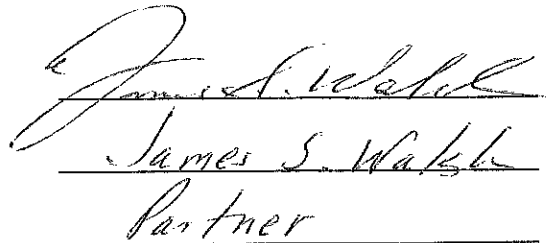 James S. Walsh
James S. Walsh
Partner